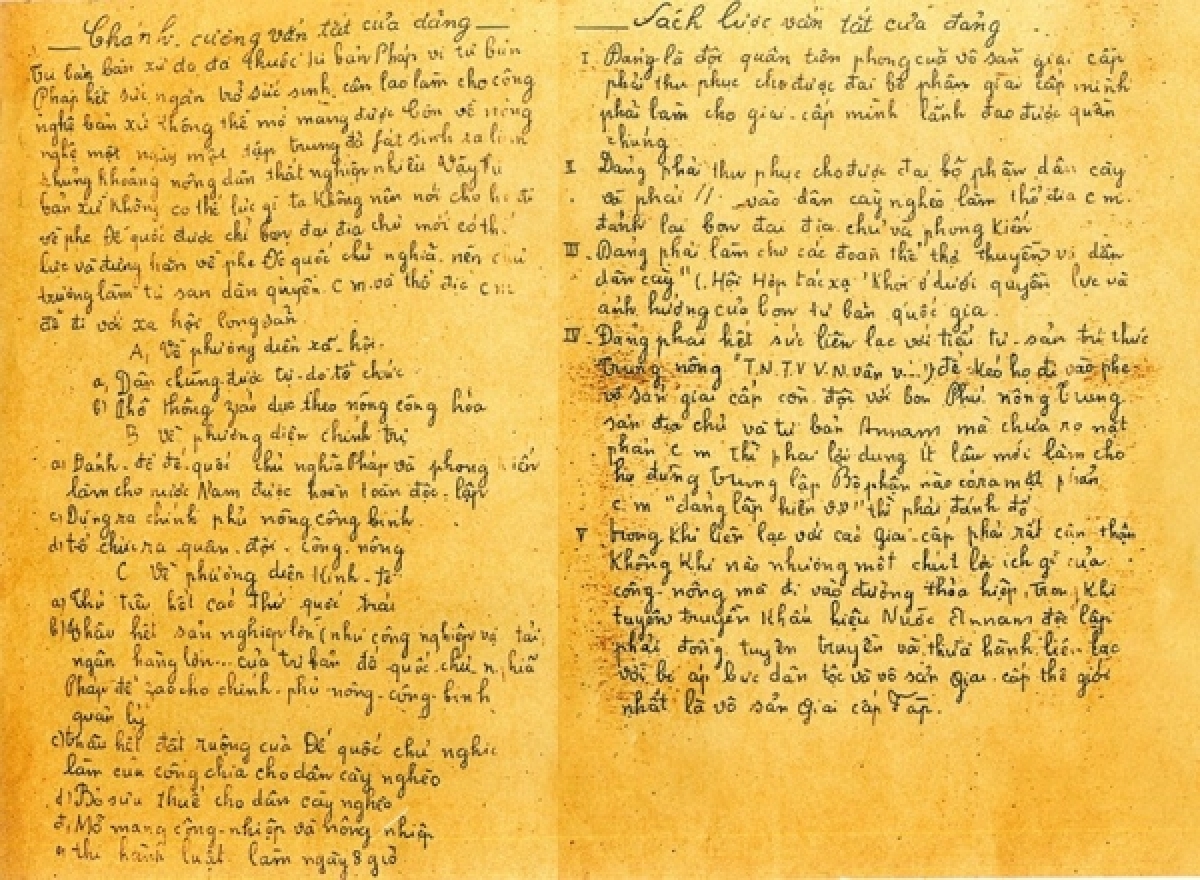 Chánh cương vắn tắt của đảng
Tư bản bản xứ đã thuộc tư bản Pháp vì tư bản
Pháp hết sức ngăn trở sức sinh cần lao làm cho công
nghệ bản xứ không thể mở mang được Còn về nông
nghệ một ngày một tập trung đã fát sinh ra
khủng khoảng nông dân thất nghiệp nhiều Vậy tư
bản xứ không có thế lực gì ta không nên nói cho họ đi
về phe Đế quốc được chỉ bọn đại địa chủ mới có thế
lực và đứng hẳn về phe Đế quốc chủ nghĩa nên chủ
trương làm tư sản dân quyền C m và thổ địa C m
để đi tới xã hội cộng sản
A, Về phương diện xã-hội.
a, Dân chúng được tự-do tổ chức
b) Phổ thông záo dục theo nông công hóa
B Về phương diện chính trị
a) Đánh-đổ đế-quốc chủ nghĩa Pháp và phong kiến
làm cho nước Nam được hoàn toàn độc-lập
c) Dựng ra chính phủ nông công binh
d) tổ chức ra quân-đội-công-nông
C Về phương diện kinh-tế
a) Thủ tiêu hết các thứ quốc trái
b) thâu hết sản nghiệp lớn (như công nghiệp vận tải,
ngân hàng lớn... của tư bản đế quốc chủ nghĩa
Pháp để zao cho chính-phủ nông-công-binh
quản lý
c) thâu hết đất ruộng của Đế quốc chủ nghĩa
làm của công chia cho dân cày nghèo
d) Bỏ sưu thuế cho dân cày nghèo
đ, Mở mang công-nhiệp và nông nhiệp
e, thi hành luật làm ngày 8 giờ
Sách lược vắn tắt của đảng
I Đảng là đội quân tiên phong của vô sản giai cấp
phải thu phục cho được đại bộ phận giai cấp mình
phải làm cho giai-cấp mình lãnh đạo được quần
chúng
II Đảng phải thu phục cho được đại bộ phận dân cày
và phải // vào dân cày nghèo làm thổ địa c m.
đánh bọn đại địa chủ và phong kiến
III Đảng phải làm cho các đoàn thể thợ thuyền và dân
dân cày" (Hội Hợp tác xã" khỏi ở dưới quyền lực và
ảnh hưởng của bọn tư bản quốc gia.
IV Đảng phải hết sức liên lạc với tiểu tư-sản trí thức
trung nông "T.N. T.V V.N. vân v...") để kéo họ đi vào phe
vô sản giai cấp còn đối với bọn Phú nông trung
sản địa chủ và tư bản Annam mà chưa rõ mặt
phản c m thì phải lợi dụng ít lâu mới làm cho
họ đứng trung lập Bộ phận nào đã ra mặt phản
c.m "đảng lập hiến v.v" thì phải đánh đổ
V trong khi liên lạc với các giai-cấp phải rất cẩn thận
không khi nào nhượng một chút lợi ích gì của
công-nông mà đi vào đường thỏa hiệp, trong khi
tuyên truyền khẩu hiệu Nước Annam độc lập
phải đồng tuyên truyền và thực hành liên lạc
với bị áp bức dân tộc và vô sản giai-cấp thế giới
nhất là vô sản giai cấp Fáp.